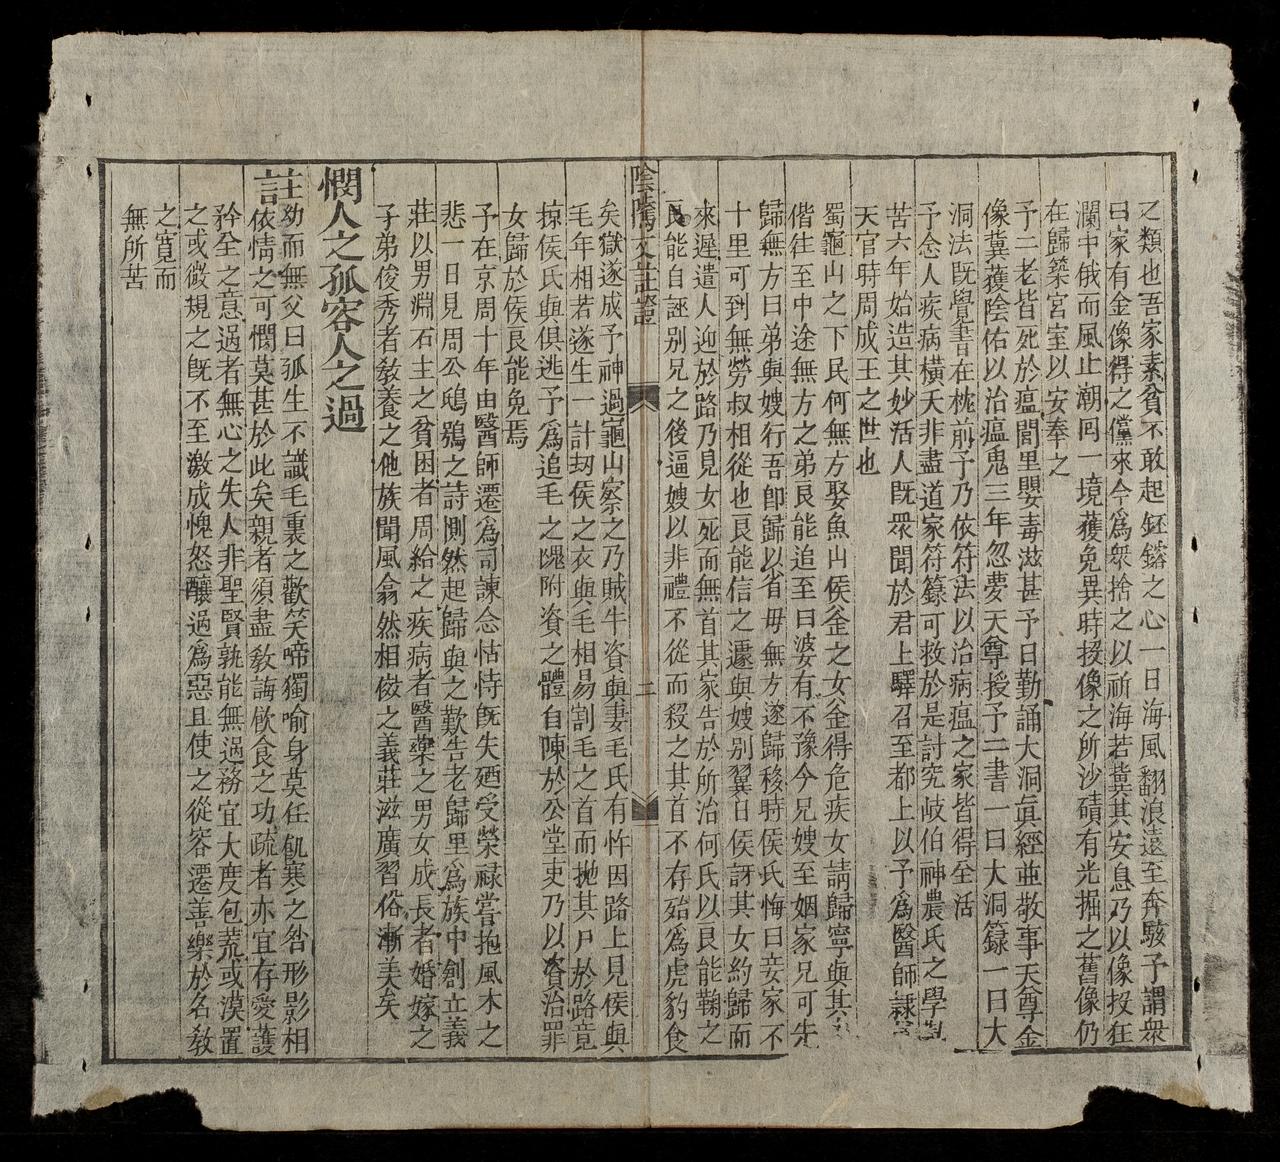 之類也吾家素貧不敢起鉟鎔之心一日海風翻浪遠至奔駭予謂衆
曰家有金像得之儻來今爲衆捨之以祈海若冀其安息乃以像投狂
瀾中俄而風止潮囘一境獲免異時投像之所沙磧有光掘之舊像仍
在歸築宮室以安奉之
予二老皆死於瘟閭里嬰毒滋甚予日勤誦大洞眞經並敬事天尊金
像冀獲陰佑以治瘟鬼三年忽夢天尊授予二書一曰大洞籙一曰大
洞法旣覺書在枕前予乃依符法以治病瘟之家皆得全活
予念人疾病橫夭非盡道家符籙可救於是討究岐伯神農氏之學
苦六年始造其妙活人旣衆聞於君上驛召至都上以予爲醫師隸
天官時周成王之世也
蜀龜山之下民何無方娶魚山侯釡歪之女釡得危疾女請歸寧與其
偕往至中途無方之弟良能追至曰婆有不豫今兄嫂至姻家兄可先
歸無方曰弟與嫂行吾卽歸以省毋無方遂歸移時侯氏悔曰妾家不
十里可到無勞叔相從也良能信之遽與嫂別翼日侯訝其女約歸而
來遲遣人迎於路乃見女死而無首其家告於所治何氏以良能鞠之
良能自誣别兄之後逼嫂以非禮不從而殺之其首不存殆爲虎豹食
陰隲文註證
二
矣獄遂成予神過龜山察之乃賊牛資與妻毛氏有忤因路上見侯與
毛年相若遂生一計刧侯之衣與毛相易割毛之首而抛其尸於路竟
掠侯氏與俱逃予爲追毛之䰟附資之體自陳於公堂吏乃以資治罪
女歸於侯良能免焉
予在京周十年由醫師遷爲司諫念怙恃旣失廼受榮祿嘗抱風木之
悲一日見周公鴟鴞之詩惻然起歸與之歎告老歸里爲族中創立義
莊以男淵石主之貧困者周給之疾病者醫藥之男女成長者婚嫁之
子弟俊秀者敎養之他族聞風翕然相傚之義莊滋廣習俗漸美矣
憫人之孤容人之過
註幼而無父曰孤生不識毛裏之歡笑啼獨喻身莫任飢寒之咎形影相
依情之可憫莫甚於此矣親者須盡敎誨飮食之功疏者亦宜存愛護
矜全之意過者無心之失人非聖賢孰能無過務宜大度包荒或漠置
之或微規之旣不至激成愧怒釀過爲惡且使之從容遷善樂於名敎
之寬而
無所苦